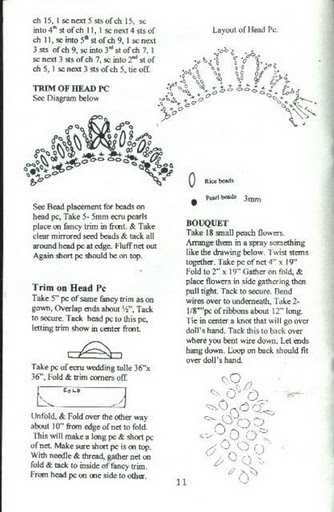 ch 15, 1 sc next 5 sts of ch 15, sc
into 4th st of ch 11, 1 sc next 4 sts of
ch 11, sc into 5th st of ch 9, 1 sc next
3 sts of ch 9, sc into 3rd st of ch 7, 1
sc next 3 sts of ch 7, sc into 2nd st of
ch 5, 1 sc next 3 sts of ch 5, tie off.
TRIM OF HEAD PC
See Diagram below
See Bead placement for beads on
head pc, Take 5- 5mm ecru pearls
place on fancy trim in front. & Take
clear mirrored seed beads & tack all
around head pc at edge. Fluff net out
Again short pc should be on top.
Trim on Head Pc
Take 5" pc of same fancy trim as on
gown, Overlap ends about ½", Tack
to secure. Tack head pc to this pc,
letting trim show in center front.
Take pc of ecru wedding tulle 36"x
36", Fold & trim corners off.
FOLD
Unfold, & Fold over the other way
about 10" from edge of net to fold.
This will make a long pc & short pc
of net. Make sure short pc is on top.
With needle & thread, gather net on
fold & tack to inside of fancy trim.
From head pc on one side to other.
Layout of Head Pc.
Rice beads
Pearl beads 3mm
BOUQUET
Take 18 small peach flowers.
Arrange them in a spray something
like the drawing below. Twist stems
together. Take pc of net 4" x 19"
Fold to 2" x 19" Gather on fold, &
place flowers in side gathering then
pull tight. Tack to secure. Bend
wires over to underneath, Take 2-
1/8""pc of ribbons about 12" long.
Tie in center a knot that will go over
doll's hand. Tack this to back over
where you bent wire down, Let ends
hang down. Loop on back should fit
over doll's hand.
11